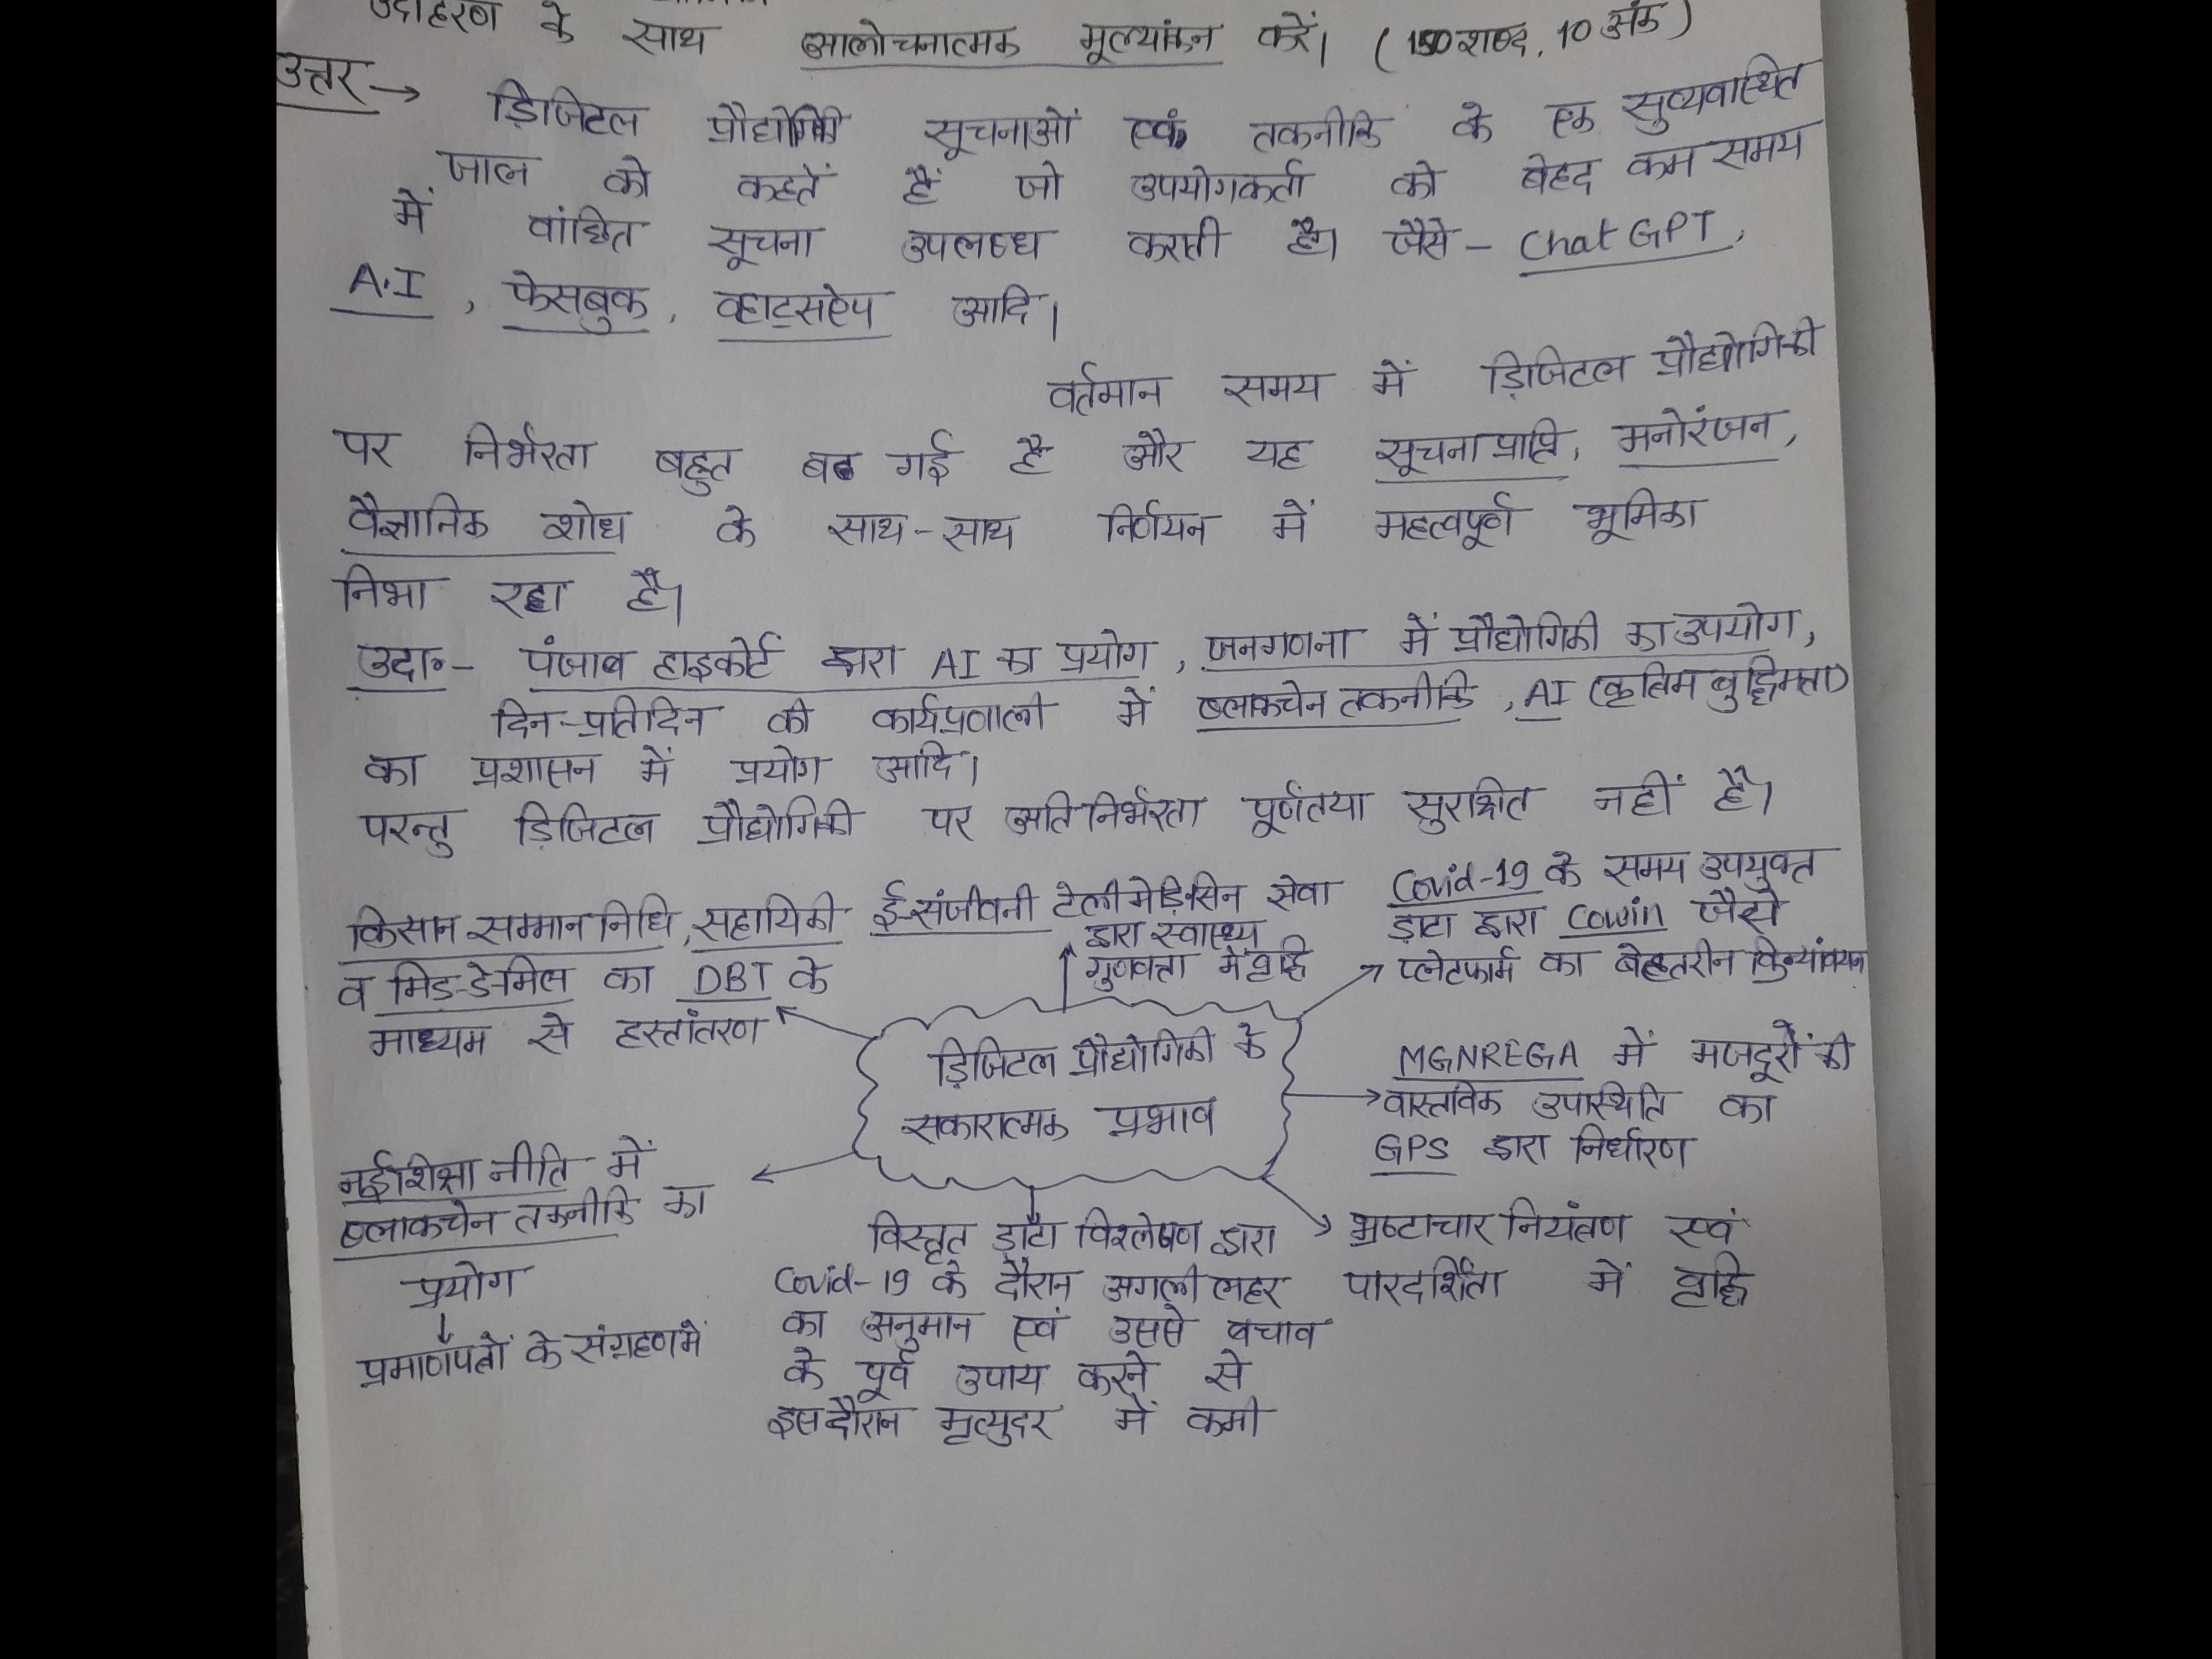 उदाहरण के साथ आलोचनात्मक मूल्यांकन करें। (150 शब्द, 10 अंक)
उत्तर →
डिजिटल प्रौद्योगिकी सूचनाओं एवं तकनीकि के एक सुव्यवस्थित
जाल को कहतें हैं जो उपयोगकर्ता को बेहद कम समय
में वांछित सूचना उपलब्ध कराती है। जैसे - Chat GPT,
A.I , फेसबुक, व्हाट्सऐप आदि।
वर्तमान समय में डिजिटल प्रौद्योगिकी
पर निर्भरता बहुत बढ गई है और यह सूचना प्राप्ति, मनोरंजन,
वैज्ञानिक शोध के साथ-साथ निर्णयन में महत्वपूर्ण भूमिका
निभा रहा है।
उदा॰- पंजाब हाइकोर्ट द्वारा AI का प्रयोग, जनगणना में प्रौद्योगिकी का उपयोग,
दिन-प्रतिदिन की कार्यप्रणाली में ब्लाकचेन तकनीकि, AI (कृत्रिम बुद्धिमत्ता)
का प्रशासन में प्रयोग आदि।
परन्तु डिजिटल प्रौद्योगिकी पर अतिनिर्भरता पूर्णतया सुरक्षित नहीं है।
किसान सम्मान निधि, सहायिकी
व मिड-डे-मिल का DBT के
माध्यम से हस्तांतरण
ई-संजीवनी टेलीमेडिसिन सेवा
द्वारा स्वास्थ्य
गुणवत्ता में वृद्धि
Covid-19 के समय उपयुक्त
डाटा द्वारा Cowin जैसे
प्लेटफार्म का बेहतरीन क्रियांवयन
डिजिटल प्रौद्योगिकी के
सकारात्मक प्रभाव
MGNREGA में मजदूरों की
वास्तविक उपस्थिति का
GPS द्वारा निर्धारण
नई शिक्षा नीति में
ब्लाकचेन तकनीकि का
प्रयोग
↓
प्रमाणपत्रों के संग्रहण में
विस्तृत डाटा विश्लेषण द्वारा
Covid-19 के दौरान अगली लहर
का अनुमान एवं उससे बचाव
के पूर्व उपाय करने से
इस दौरान मृत्युदर में कमी
भ्रष्टाचार नियंत्रण एवं
पारदर्शिता में वृद्धि